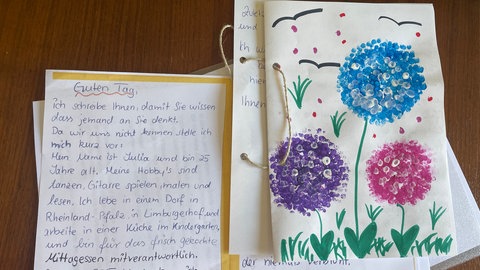 Guten Tag,
ich schreibe Ihnen, damit Sie wissen
dass jemand an Sie denkt.
Da wir uns nicht kennen stelle ich
mich kurz vor:
Mein Name ist Julia und bin 25
Jahre alt. Meine Hobby's sind
tanzen, Gitarre spielen, malen und
lesen. Ich lebe in einem Dorf in
Rheinland-Pfalz, in Limburgerhof und
arbeite in einer Küche im Kindergarten,
und bin für das frisch gekochte
Mittagessen mitverantwortlich.
und
Ich w
hier
Ihnen
der niemals